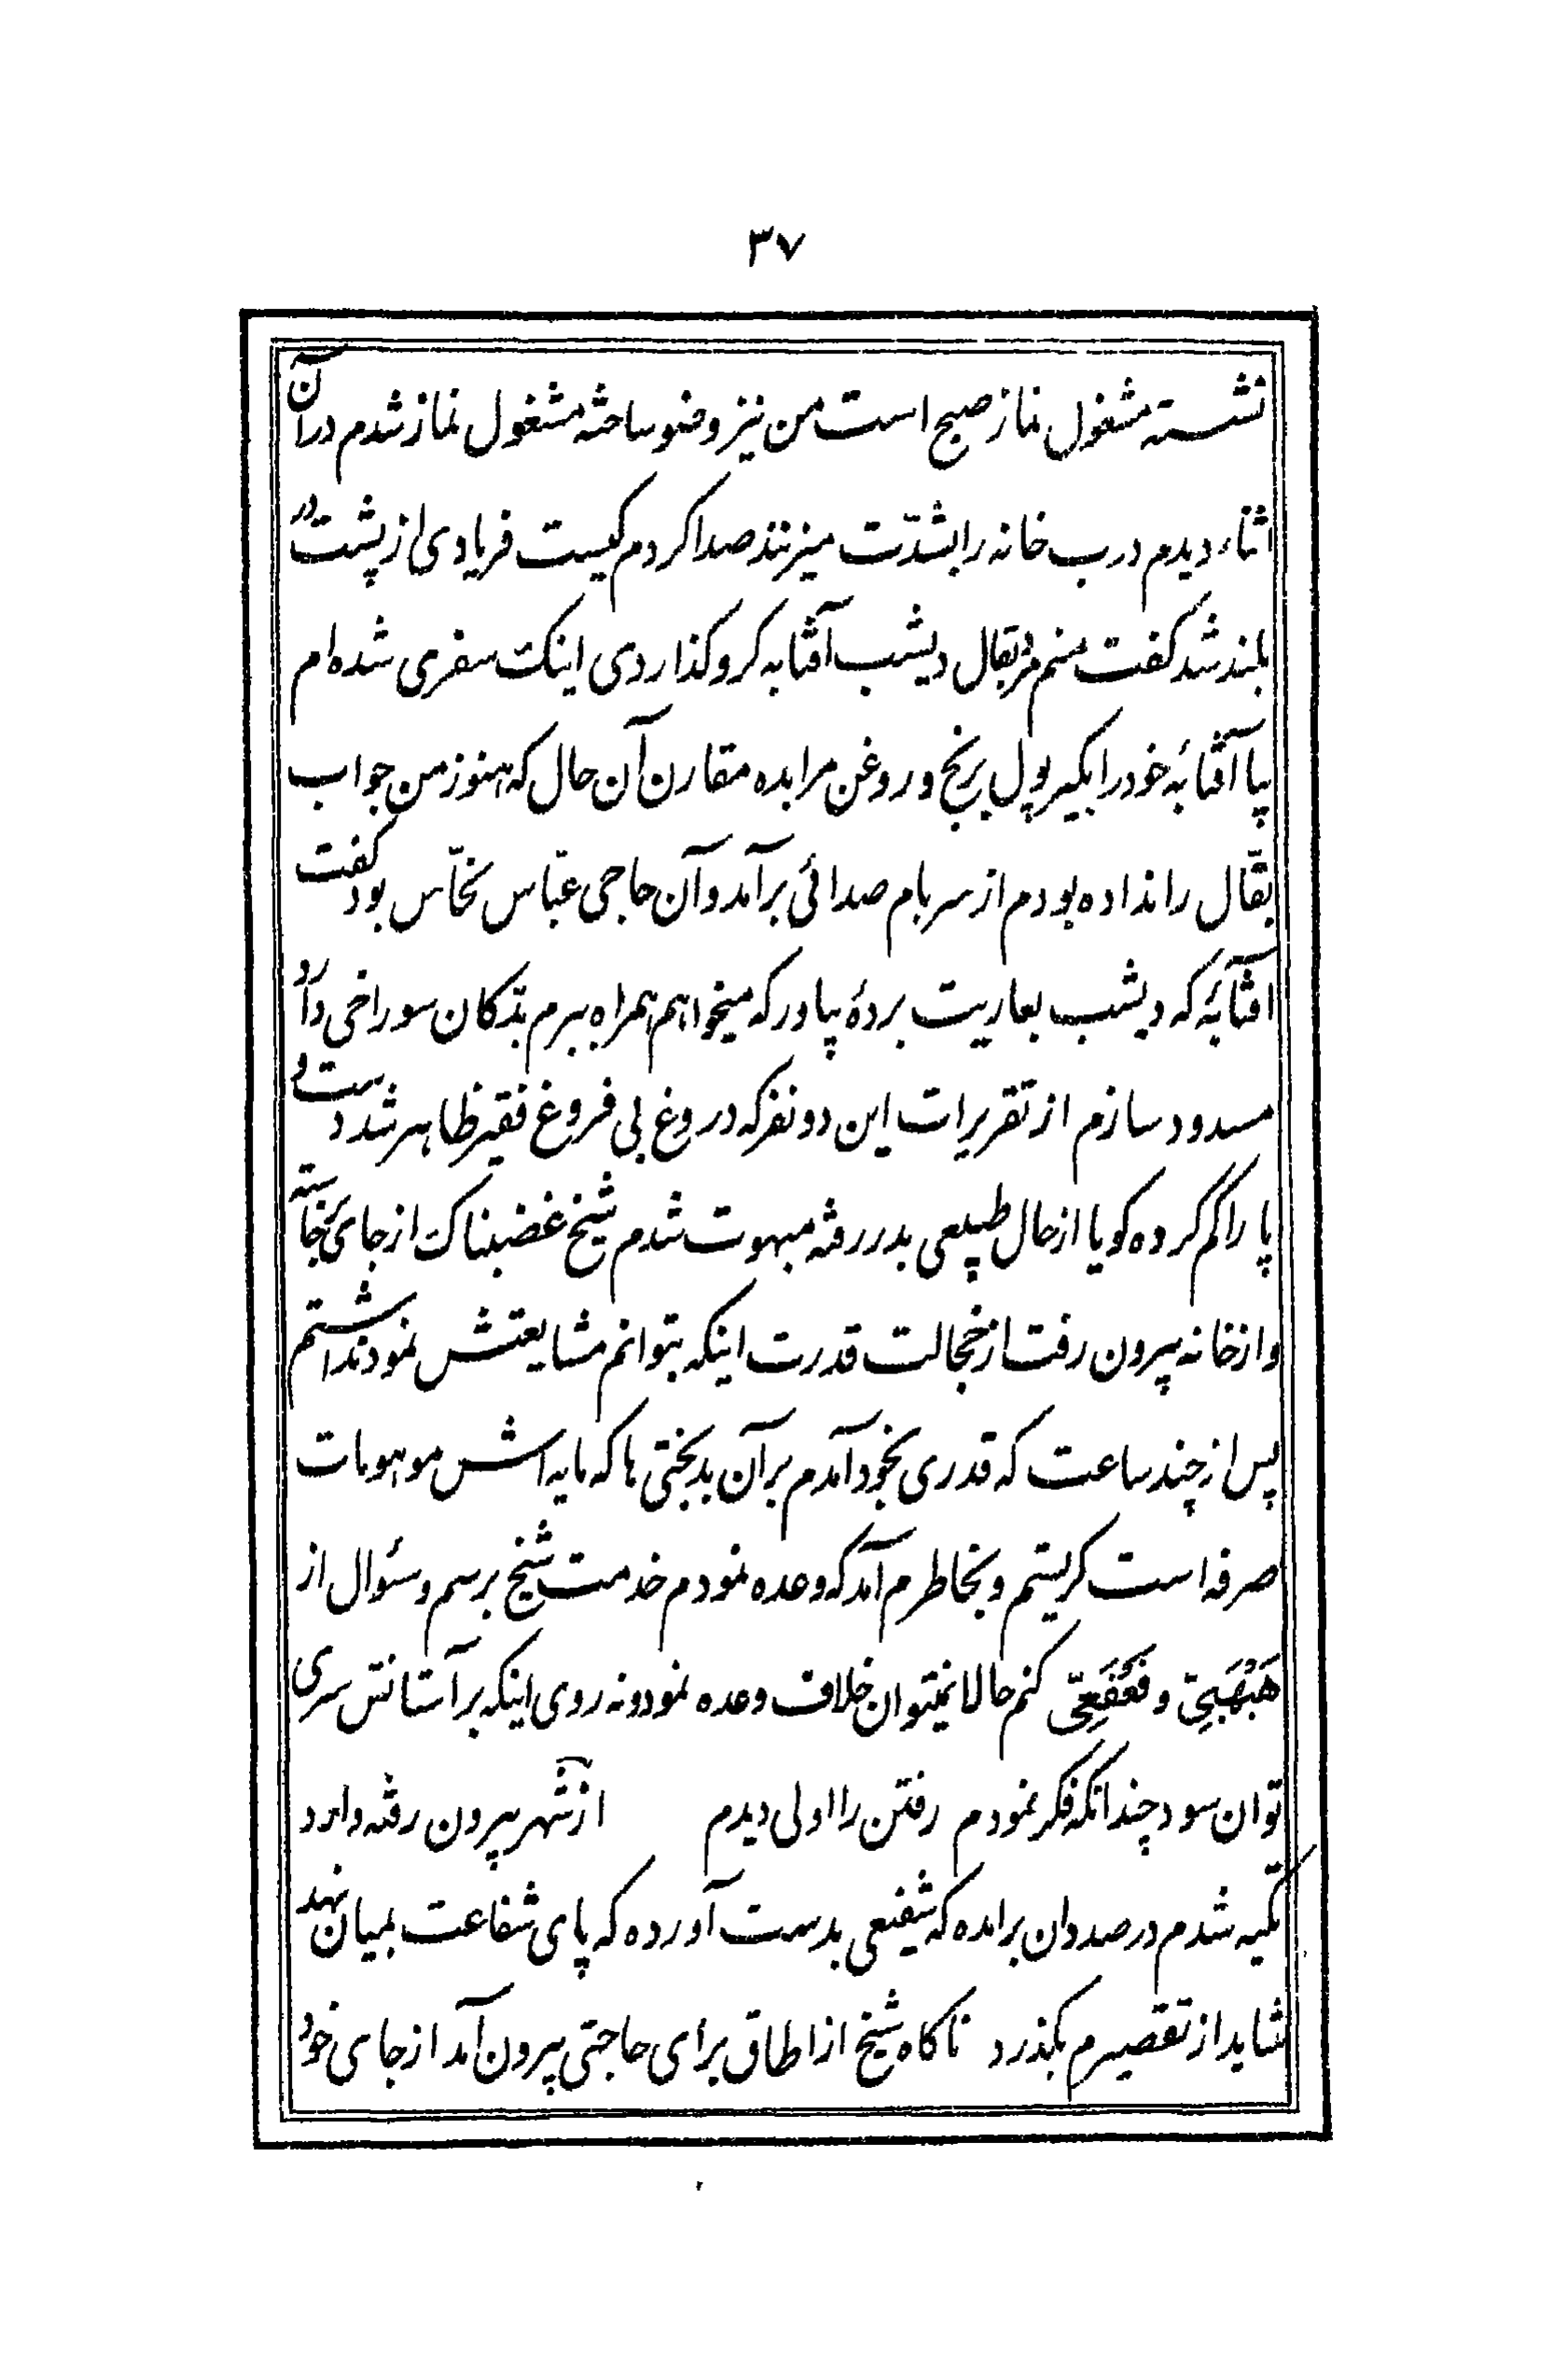 ۳۷
نشسته مشغول نماز صبح است من نیز وضو ساخته مشغول نماز شدم در آن
اثناء دیدم درب خانه را بشدّت میزنند صدا کردم کیست فریادی از پشت در
بلند شد کفت منم مرد بقال دیشب آفتابه کرو کذاردی اینک سفری شده ام
بیا آفتابهٔ خود را بکیر پول برنج و روغن مرا بده مقارن آن حال که هنوز من جواب
بقّال را نداده بودم از سر بام صدائی برآمد و آن حاجی عبّاس نحّاس بود کفت
آفتابهٔ که دیشب بعاریت بردهٔ بیاور که میخواهم همراه ببرم بدکان سوراخی دارد
مسدود سازم از تقریرات این دو نفر که دروغ بی فروغ فقیر ظاهر شد دست و
پا را کم کرده کویا از حال طبیعی بدر رفته مبهوت شدم شیخ غضبناک از جای خاسته
و از خانه بیرون رفت از خجالت قدرت اینکه بتوانم مشایعتش نمود نداشتم
پس از چند ساعت که قدری بخود آمدم بر آن بدبختی ها که مایه اش موهومات
صرفه است کریستم و بخاطرم آمد که وعده نمودم خدمت شیخ برسم و سئوال از
هَبْهَبِیّ و فَعْفَعِیّ کنم حالا نمیتوان خلاف وعده نمود و نه روی اینکه بر آستانش سری
توان سود چندانکه فکر نمودم رفتن را اولی دیدم از شهر بیرون رفته وارد
تکیه شدم در صدد ان برامده که شفیعی بدست آورده که پای شفاعت بمیان نهد
شاید از تقصیرم بکذرد ناکاه شیخ از اطاق برای حاجتی بیرون آمد از جای خود